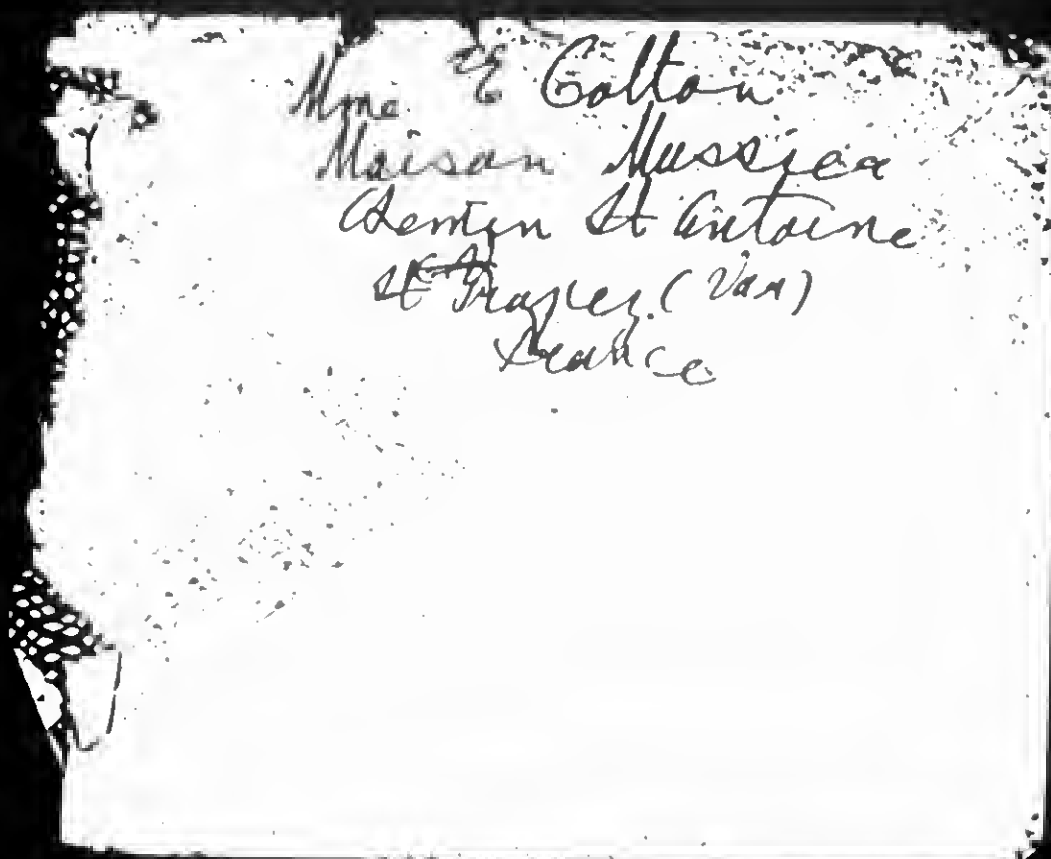 Mme E Colton
Maison
Chemin St Antoine
St Tropez. (Var)
France